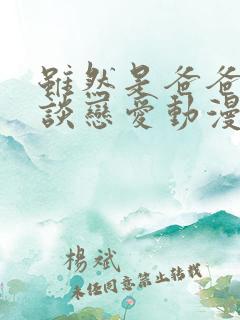 雖然是爸爸
談戀愛動漫
楊斌
未任同意禁止轉載